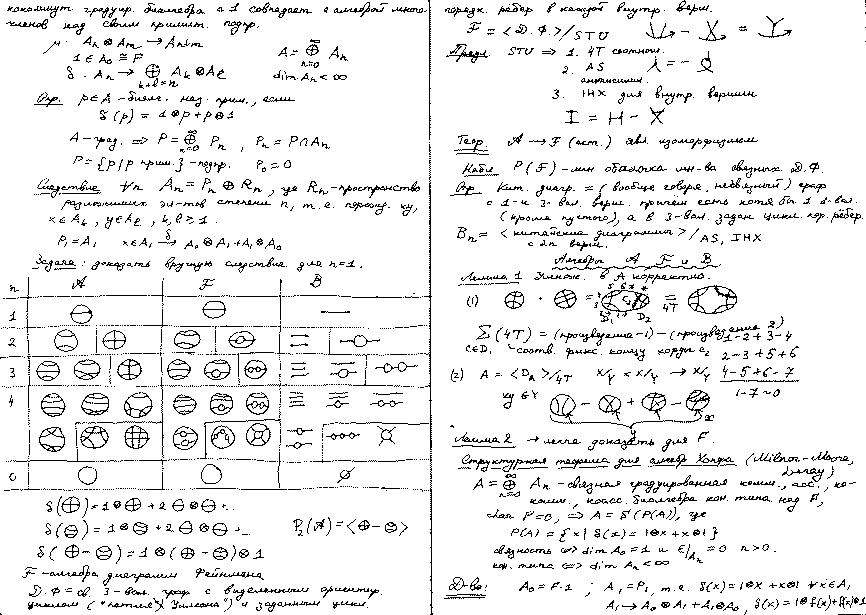 кокоммут. градуир. биалгебра с 1 совпадает с алгеброй много-
членов над своим примит. подпр.
μ: An ⊗ Am → An+m
1 ∈ A0 ≅ F
A = ⊕ An
n=0
δ: An → ⊕ Ak ⊗ Al
k+l=n
dim An < ∞
Опр. p ∈ A - биалг. наз. прим., если
δ(p) = 1⊗p + p⊗1
A - град. ⇒ P = ⊕ Pn , Pn = P∩An
n=0
P = {p | p прим.} - подпр. P0 = 0
Следствие ∀n An = Pn ⊕ Rn, где Rn - пространство
разложимых эл-тов степени n, т.е. порожд. xy,
x∈Ak, y∈Al, k,l ≥ 1.
P1 = A1 x∈A1 → A0⊗A1 + A1⊗A0
δ
Задача: доказать вручную следствие для n=1.
n A F B
1
2
3
4
0
δ( ) = 1⊗ + 2 ⊗ + ...
δ( ) = 1⊗ + 2 ⊗ + ...
P2(A) = < - >
δ( - ) = 1⊗( - )⊗1
F - алгебра диаграмм Фейнмана
Д.Ф = 3-вал. граф с выделенным ориентир.
циклом ("петлей Уилсона") и заданным цикл.
порядк. рёбер в каждой внутр. верш.
F = <Д.Ф.>/STU - =
Предл. STU ⇒ 1. 4T соотнош.
2. AS = -
антисимм.
3. IHX для внутр. вершин
I = H - X
Теор. A → F (ест.) явл. изоморфизмом
Набл. P(F) - лин оболочка мн-ва связных Д.Ф.
Опр Кит. диагр. = (вообще говоря, несвязный) граф
с 1- и 3-вал. верш. причём есть хотя бы 1 1-вал.
(кроме пустого), а в 3-вал. задан цикл. пор. рёбер.
Bn = <китайские диаграммы>/AS, IHX
с 2n верш.
Алгебры A F и B
Лемма 1 Умнож. в A корректно.
(1) · = =
D1 D2 4T
Σ(4T) = (произведение-1) - (произведение 2)
c∈D1 соотв. фикс. концу хорды c2
1-2+3-4
2-3+5+6
4-5+6-7
1-7~0
(2) A = <DA>/4T
- + -
Лемма 2 → легче доказать для F.
Структурная теорема для алгебр Хопфа (Milnor-Moore,
A = ⊕ An - связная градуированная комм., асс., ко-
n=0
комм., коасс. биалгебра кон. типа над F,
char F=0, ⇒ A = S(P(A)), где
P(A) = {x | δ(x) = 1⊗x + x⊗1}
связность ⇔ dim A0 = 1 и ε|An = 0 n>0.
кон. типа ⇔ dim An < ∞
Д-во: A0 = F·1 ; A1 = P1, т.е. δ(x) = 1⊗x + x⊗1 ∀x∈A1
A1 → A0⊗A1 + A1⊗A0, δ(x) = 1⊗f(x) + f(x)⊗1